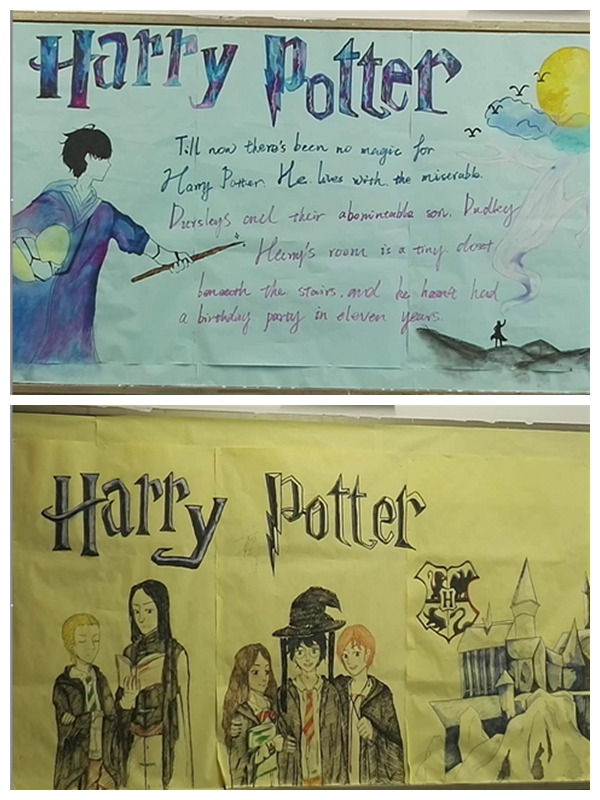 Harry Potter
Till now there's been no magic for
Harry Potter. He lives with the miserable
Dursleys and their abominable son, Dudley
Harry's room is a tiny closet
beneath the stairs, and he hasn't had
a birthday party in eleven years.
Harry Potter
H